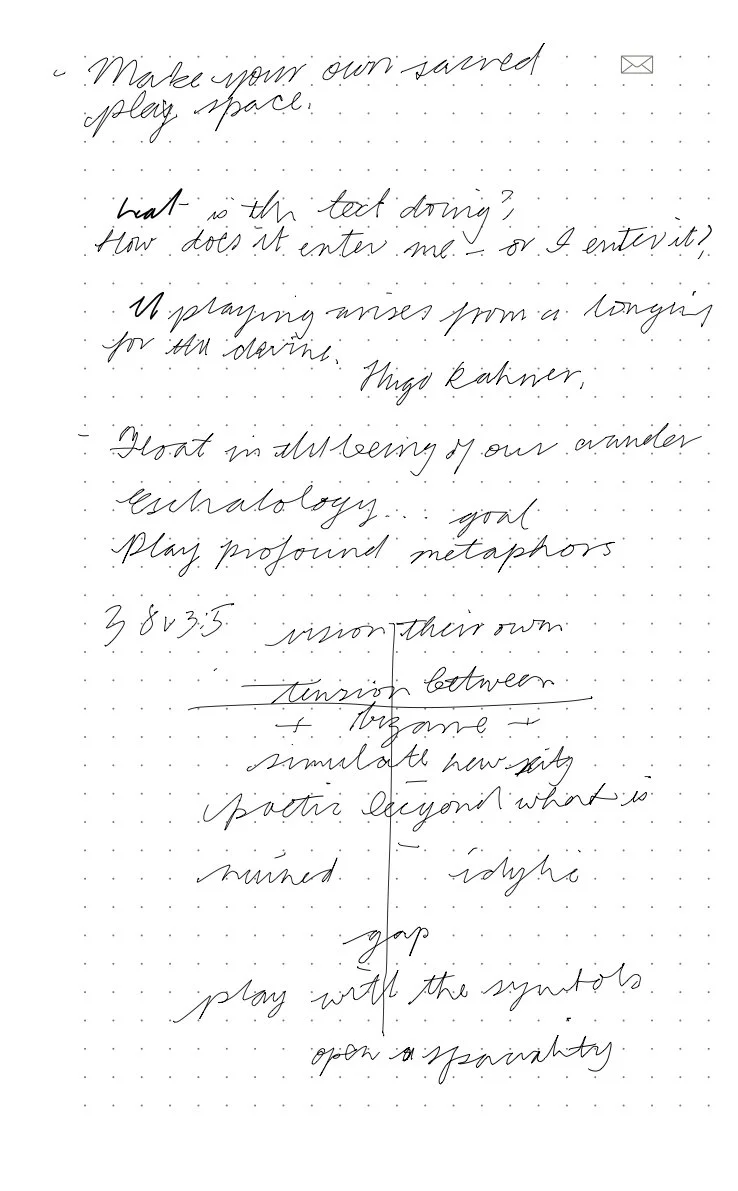 - Make your own sacred
play space.
what is the text doing?,
How does it enter me - or I enter it?
playing arises from a longing
for the devine.
Hugo Rahner.
- Float in the being of our
Eschatology... goal
Play profound metaphors
3 8 v 3:5 vision their own
tension between
+ bizarre +
simulate new
poetic beyond what is
ruined - idylic
gap
play with the symbols
open a spaciality